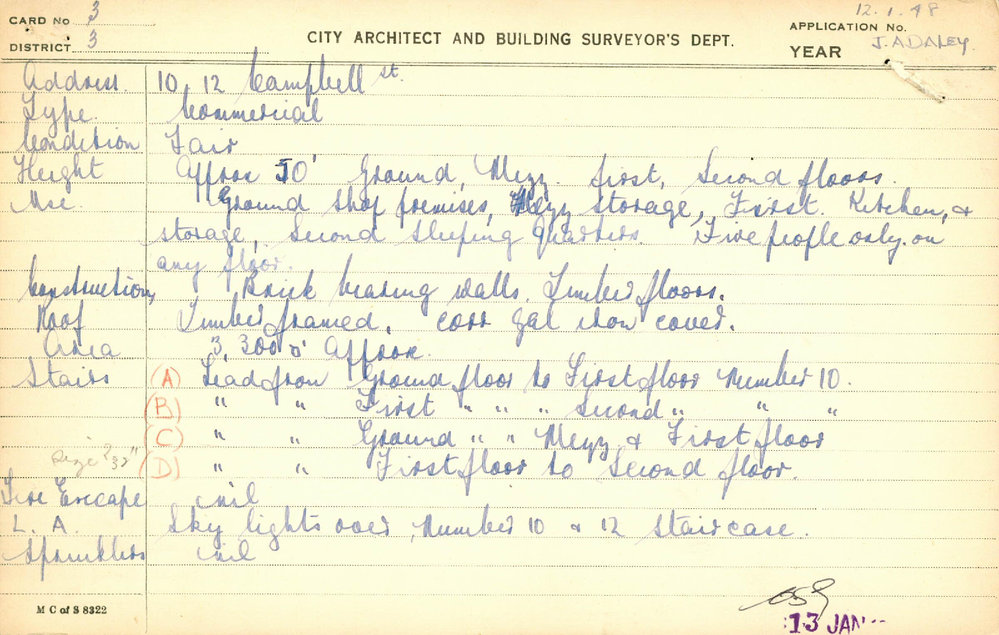 CARD No. 3
DISTRICT. 3
CITY ARCHITECT AND BUILDING SURVEYOR'S DEPT.
12.1.48
APPLICATION No.
YEAR J. ADALEY.
Address. 10, 12 Campbell st.
Type. Commercial
Condition Fair
Height Approx 50' Ground, Mezz. first, Second floors.
Use. Ground Shop premises, Mezz storage, First. Kitchen, &
storage, Second Sleeping Quarters. Five people only on
any floor.
Construction, Brick bearing walls. Timber floors.
Roof Timber framed, corr gal iron cover.
Area 3,300 □' approx.
Stairs (A) Lead from Ground floor to First floor Number 10.
(B) " " First " " " Second " " "
(C) " " Ground " " Mezz & First floor
size 2'32" (D) " " First floor to Second floor.
Fire Escape nil
L. A. Sky lights over Number 10 & 12 Staircase.
Sprinklers nil
M C of S 8322
13 JAN